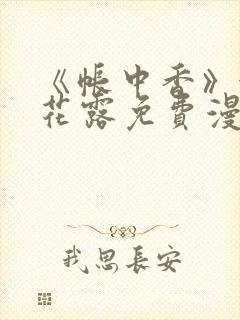 《帐中香》
花露免费漫
我思长安